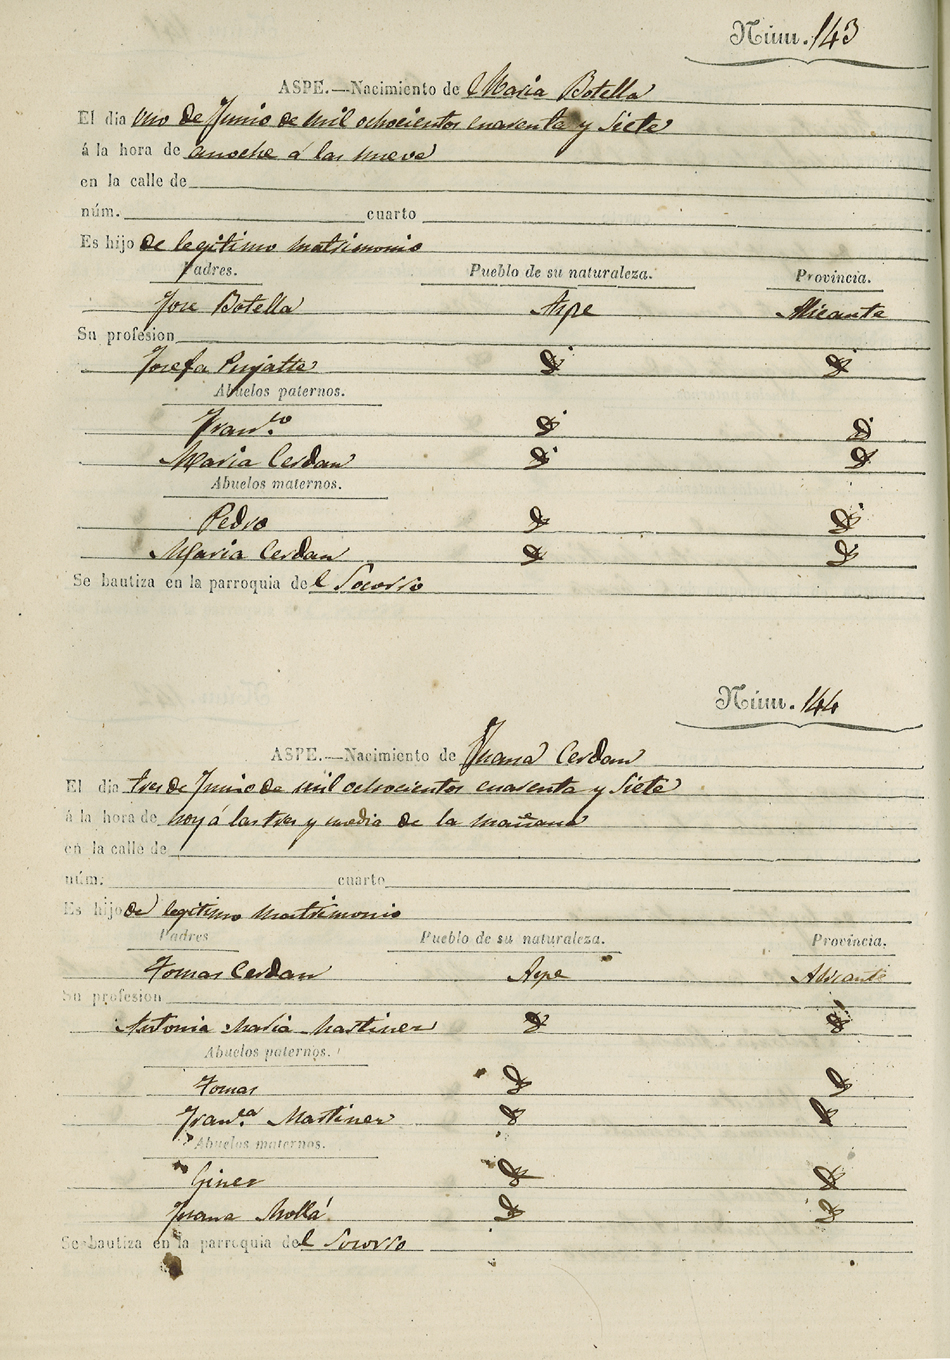 Núm. 143
ASPE.—Nacimiento de Maria Botella
El dia uno de Junio de mil ochocientos cuarenta y siete
á la hora de anoche á las nueve
en la calle de
núm. cuarto
Es hijo de legitimo matrimonio
Padres. Pueblo de su naturaleza. Provincia.
Jose Botella Aspe Alicante
Su profesion
Josefa Pujalte Di Di
Abuelos paternos.
Fran.co Di Di
Maria Cerdan Di Di
Abuelos maternos.
Pedro Di Di
Maria Cerdan Di Di
Se bautiza en la parroquia del Socorro
Núm. 144
ASPE.—Nacimiento de Juana Cerdan
El dia tres de Junio de mil ochocientos cuarenta y siete
á la hora de hoy á las tres y media de la mañana
en la calle de
núm. cuarto
Es hijo de legitimo matrimonio
Padres Pueblo de su naturaleza. Provincia.
Tomas Cerdan Aspe Alicante
Su profesion
Antonia Maria Martinez Di Di
Abuelos paternos.
Tomas Di Di
Fran.ca Martinez Di Di
Abuelos maternos.
Giner Di Di
Juana Mollá Di Di
Se bautiza en la parroquia del Socorro